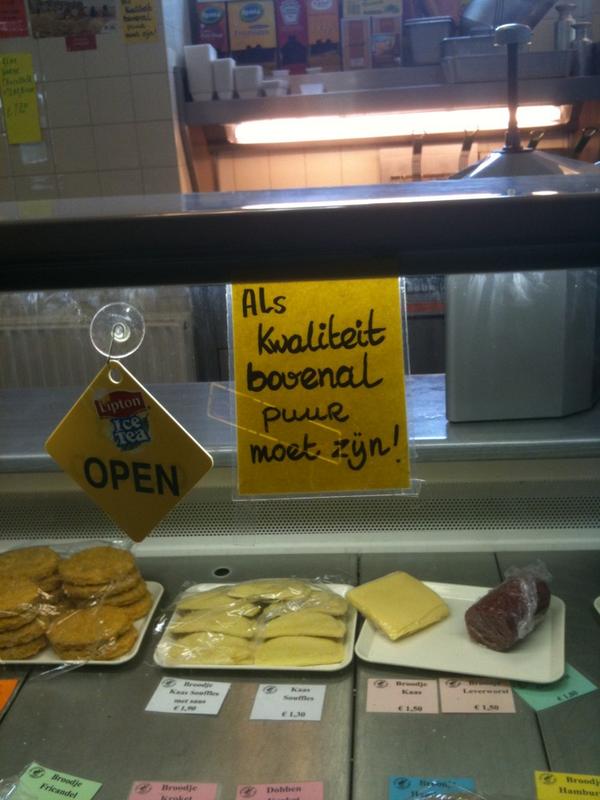 Kwaliteit
bovenal
puur
moet zijn!
Als
Kwaliteit
bovenal
puur
moet zijn!
Lipton
Ice
Tea
OPEN
Broodje
Kaas Souffles
met saus
€ 1,90
Kaas
Souffles
€ 1,30
Broodje
Kaas
€ 1,50
Broodje
Leverworst
€ 1,50
Broodje
Fricandel
Broodje
Kroket
Dobben
Broodje
Broodje
Hambur